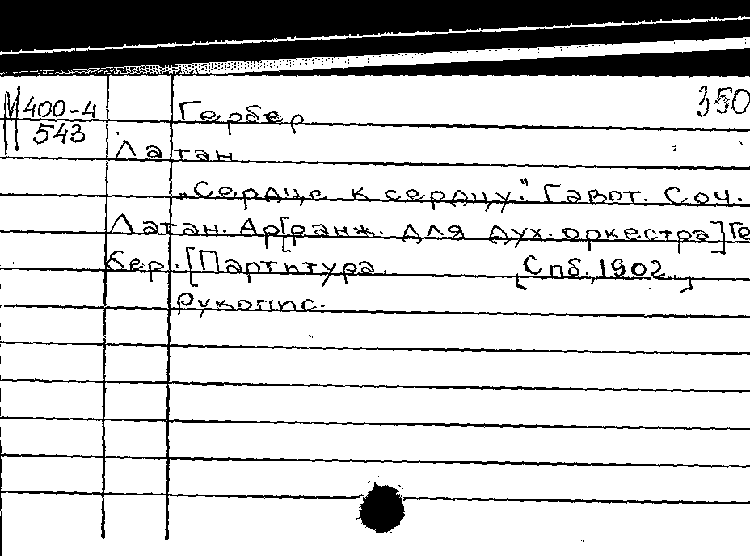 М400-4 Гербер 350
543
Латан
"Сердце к сердцу." Гавот. Соч.
Латан. Ар[ранж. для дух. оркестра] Ге
бер. [Партитура. [Спб., 1902.]
Рукопис.